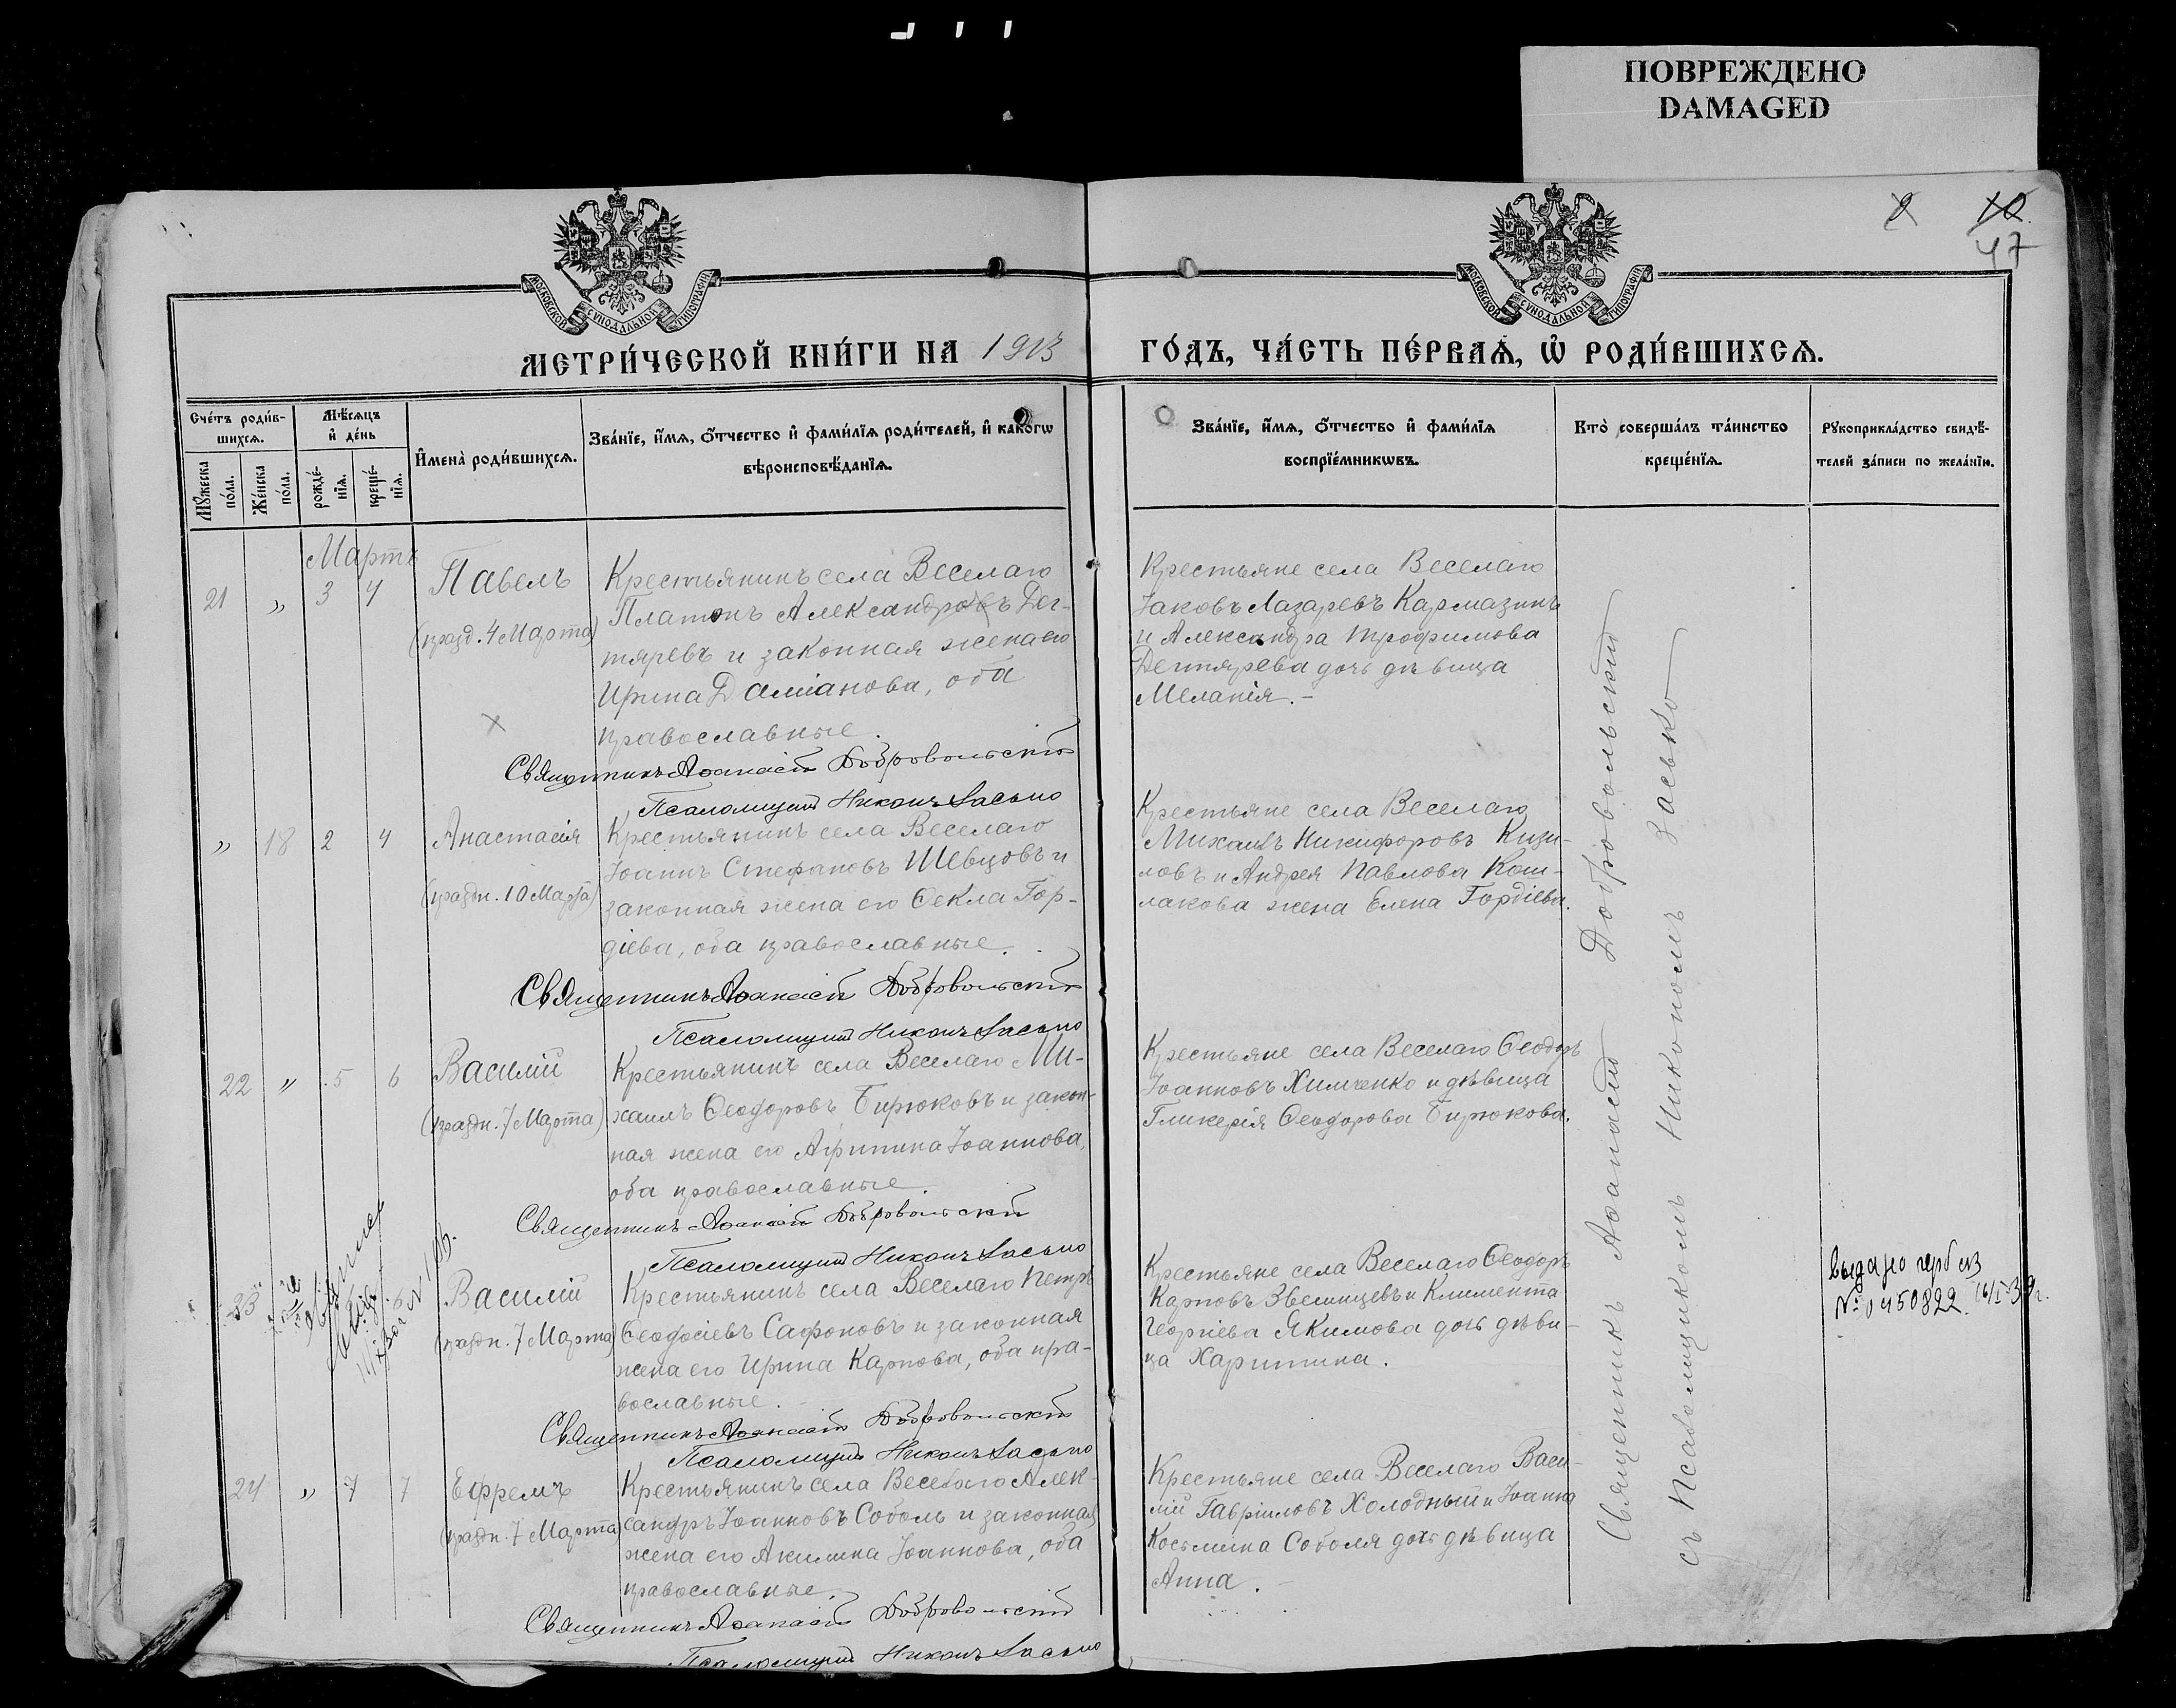 ПОВРЕЖДЕНО
DAMAGED
47
МОСКОВСКОЙ СѴНОДАЛЬНОЙ ТИПОГРАФІИ
МОСКОВСКОЙ СѴНОДАЛЬНОЙ ТИПОГРАФІИ
МЕТРИ́ЧЕСКОЙ КНИ́ГИ НА 1913
ГО́ДЪ, ЧА́СТЬ ПЕ́РВАѦ, Ѡ҆ РОДИ́ВШИХСѦ.
Сче́тъ роди́в-
шихсѧ.
Мꙋ́жеска по́ла.
Же́нска по́ла.
Мѣ́сѧцъ
и҆ де́нь
рожде́-
нїѧ.
креще́-
нїѧ.
И҆мена̀ роди́вшихсѧ.
Зва́нїе, и҆́мѧ, ѻ҆́тчество и҆ фами́лїѧ роди́телей, и҆ како́гѡ
вѣроисповѣ́данїѧ.
Зва́нїе, и҆́мѧ, ѻ҆́тчество и҆ фами́лїѧ
воспрїе́мникѡвъ.
Кто̀ соверша́лъ та́инство
креще́нїѧ.
Рꙋкоприкла́дство свидѣ́-
телей за́писи по жела́нїю.
Мартъ
21 „ 3 4 Павелъ
(празд. 4 Марта)
Крестьянинъ села Веселаго
Платонъ Александровъ Дег-
тяревъ и законная жена его
Ирина Даміанова, оба
православные.
Священникъ Аѳанасій Добровольскій
Псаломщикъ Никонъ Засько
Крестьяне села Веселаго
Іаковъ Лазаревъ Кармазинъ
и Александра Трофимова
Дегтярева дочь дѣвица
Меланія.-
„ 18 2 4 Анастасія
(праздн. 10 Марта)
Крестьянинъ села Веселаго
Іоаннъ Стефановъ Шевцовъ и
законная жена его Ѳекла Гор-
діева, оба православные.
Священникъ Аѳанасій Добровольскій
Псаломщикъ Никонъ Засько
Крестьяне села Веселаго
Михаилъ Никифоровъ Кизи-
ловъ и Андрея Павлова Кош-
лакова жена Елена Гордіева.
22 „ 5 6 Василій
(праздн. 7 Марта)
Крестьянинъ села Веселаго Ми-
хаилъ Ѳеодоровъ Бирюковъ и закон-
ная жена его Агрипина Іоаннова,
оба православные.
Священникъ Аѳанасій Добровольскій
Псаломщикъ Никонъ Засько
Крестьяне села Веселаго Ѳеодоръ
Іоанновъ Химченко и дѣвица
Гликерія Ѳеодорова Бирюкова.
23 6 Василій
(праздн. 7 Марта)
Крестьянинъ села Веселаго Петръ
Ѳеодосіевъ Сафоновъ и законная
жена его Ирина Карпова, оба пра-
вославные.
Священникъ Аѳанасій Добровольскій
Псаломщикъ Никонъ Засько
Крестьяне села Веселаго Ѳеодоръ
Карповъ Звегинцевъ и Климента
Георгіева Якимова дочь дѣви-
ца Харитина.
выдано
№ 0450822 16/I-39г.
24 „ 7 7 Ефремъ
(праздн. 7 Марта)
Крестьянинъ села Веселаго Алек-
сандръ Іоанновъ Соболь и законная
жена его Акилина Іоаннова, оба
православные.
Священникъ Аѳанасій Добровольскій
Псаломщикъ Никонъ Засько
Крестьяне села Веселаго Васи-
лій Гавріиловъ Холодный и Іоанна
Косьмина Соболя дочь дѣвица
Анна.-
Священникъ Аѳанасій Добровольскій
съ Псаломщикомъ Никономъ Засько